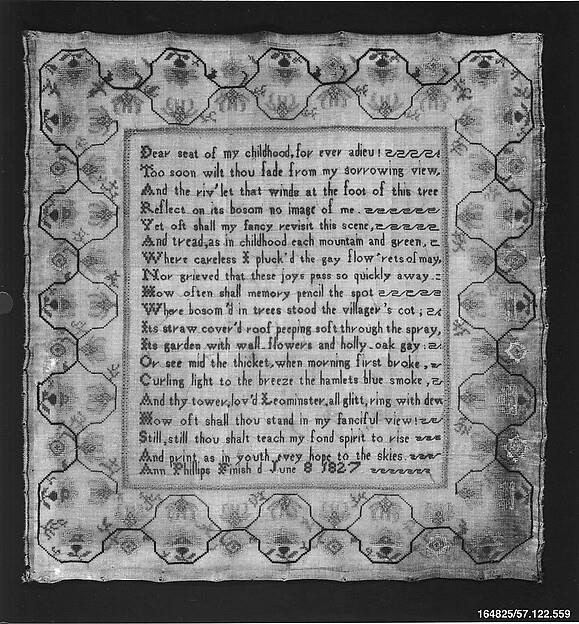 Dear seat of my childhood, for ever adieu!
Too soon wilt thou fade from my sorrowing view,
And the riv'let that winds at the foot of this tree
Reflect on its bosom no image of me.
Yet oft shall my fancy revisit this scene,
And tread, as in childhood each mountain and green,
Where careless I pluck'd the gay flow'rets of may,
Nor grieved that these joys pass so quickly away
How often shall memory pencil the spot
Where bosom'd in trees stood the villager's cot;
Its straw cover'd roof peeping soft through the spray,
Its garden with wall flowers and holly oak gay:
Or see mid the thicket, when morning first broke,
Curling light to the breeze the hamlets blue smoke,
And thy tower, lov'd Leominster, all glitt,ring with dew
How oft shall thou stand in my fanciful view!
Still, still thou shalt teach my fond spirit to rise
And print as in youth evey hope to the skies.
Ann Phillips Finish d June 8 1827
164825/57.122.559